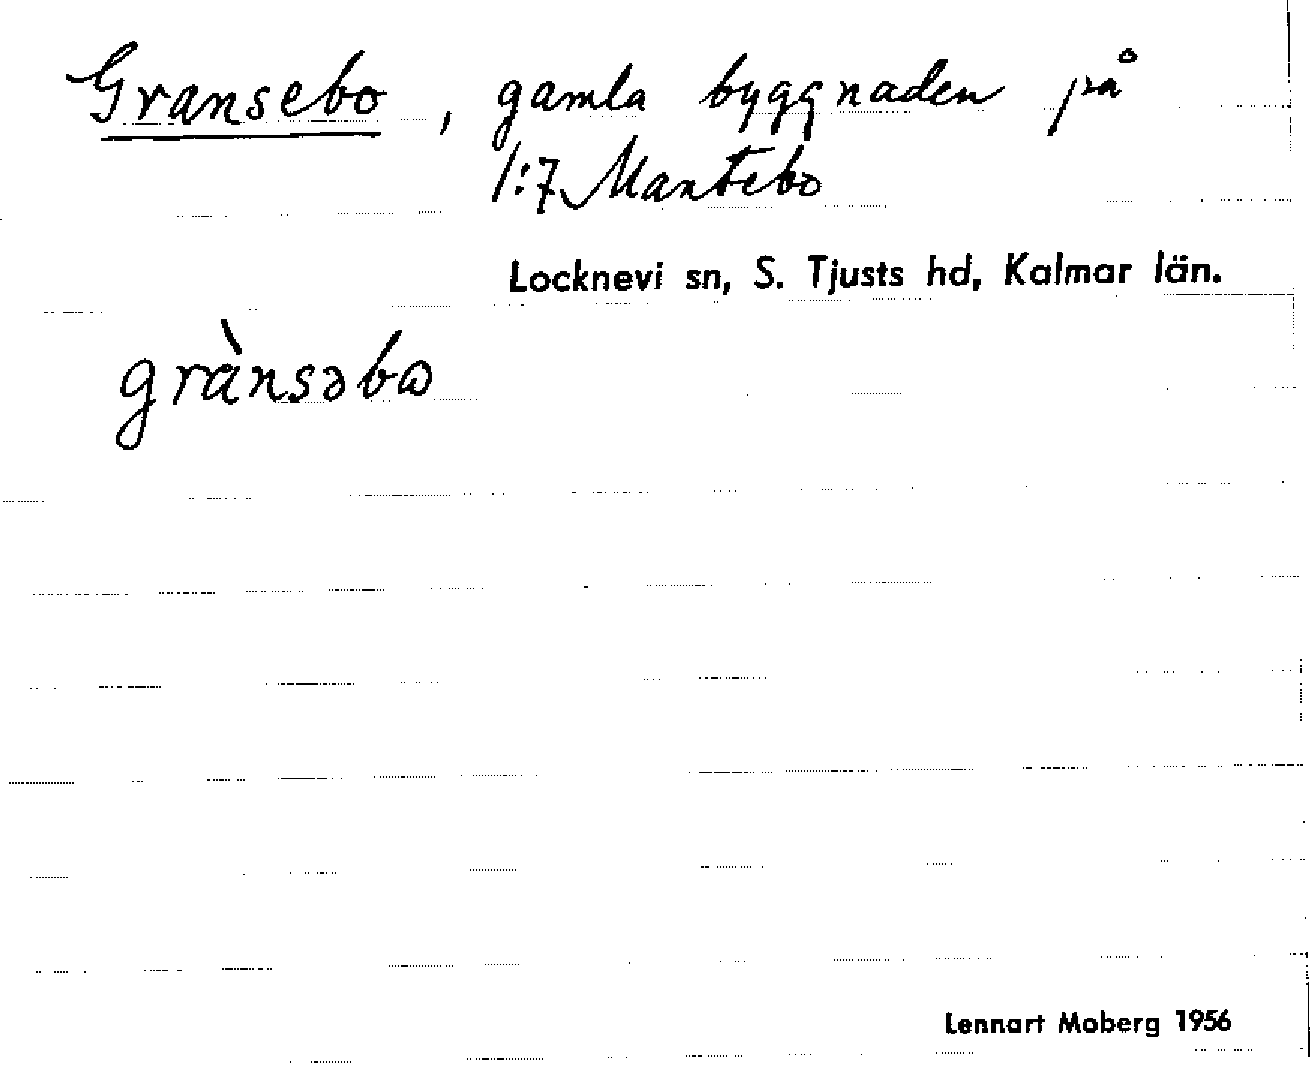 Gransebo, gamla byggnaden på
1:7 Mantebo
Locknevi sn, S. Tjusts hd, Kalmar län.
grànsəbω
Lennart Moberg 1956